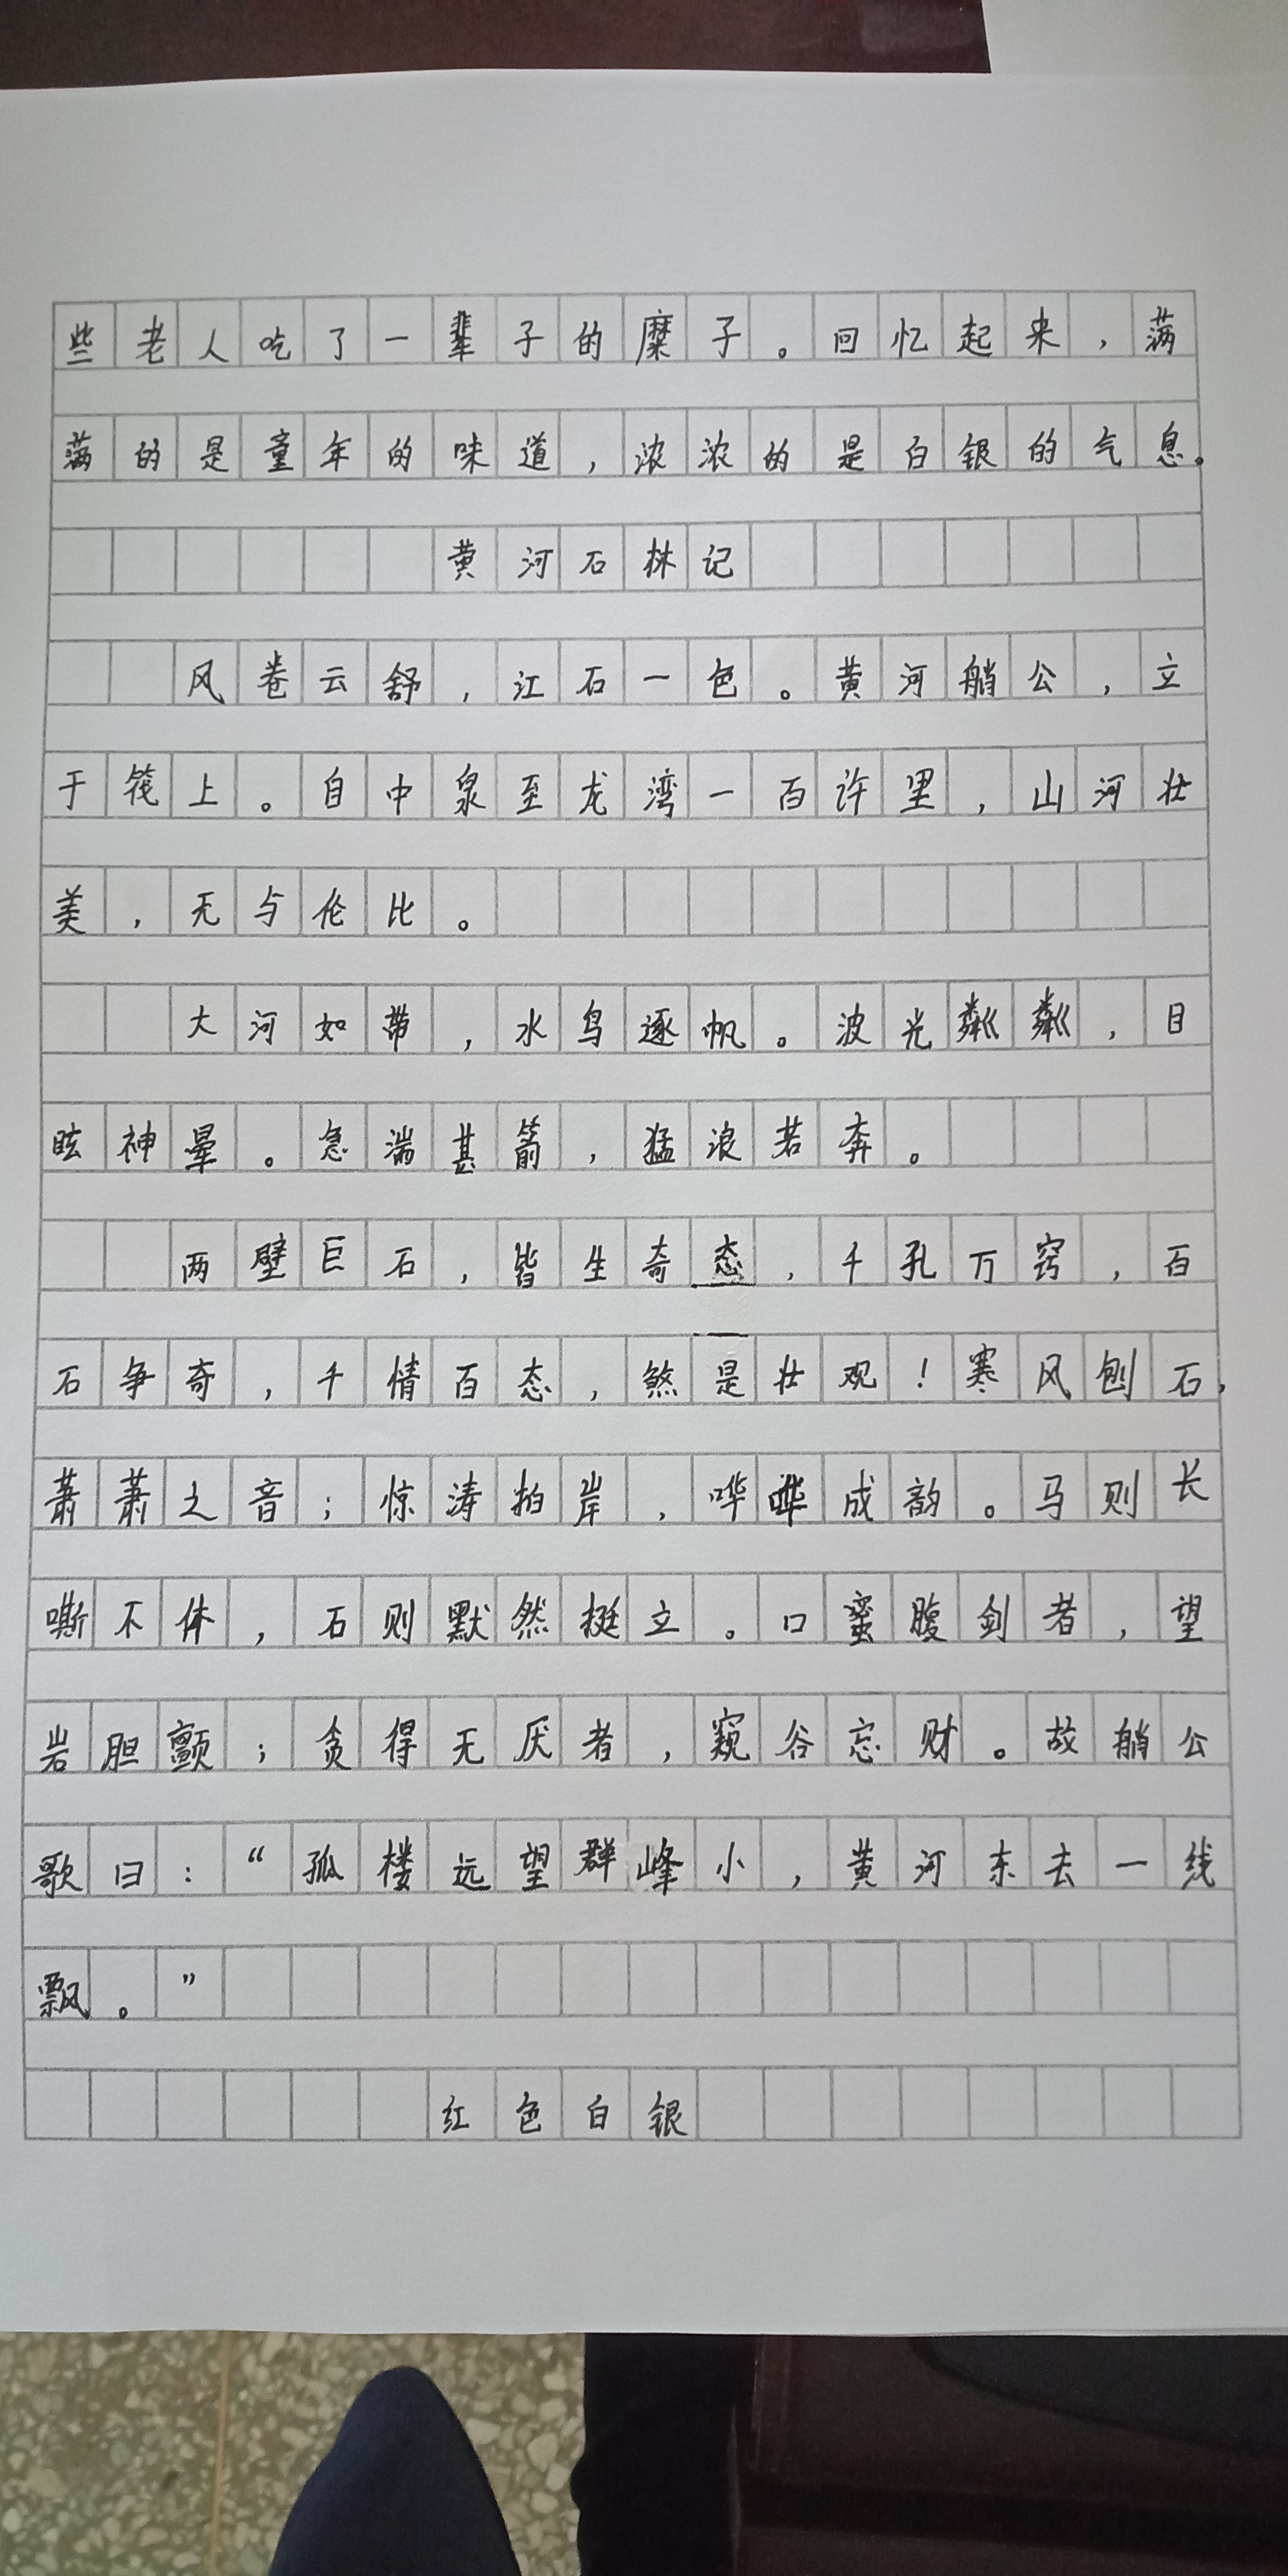 些老人吃了一辈子的糜子。回忆起来，满
满的是童年的味道，浓浓的是白银的气息。
黄河石林记
风卷云舒，江石一色。黄河艄公，立
于筏上。自中泉至龙湾一百许里，山河壮
美，无与伦比。
大河如带，水鸟逐帆。波光粼粼，目
眩神晕。急湍甚箭，猛浪若奔。
两壁巨石，皆生奇态，千孔万窍，百
石争奇，千情百态，煞是壮观！寒风刨石，
萧萧之音；惊涛拍岸，哗哗成韵。马则长
嘶不体，石则默然挺立。口蜜腹剑者，望
岩胆颤；贪得无厌者，窥谷忘财。故艄公
歌曰：“孤楼远望群峰小，黄河东去一线
飘。”
红色白银